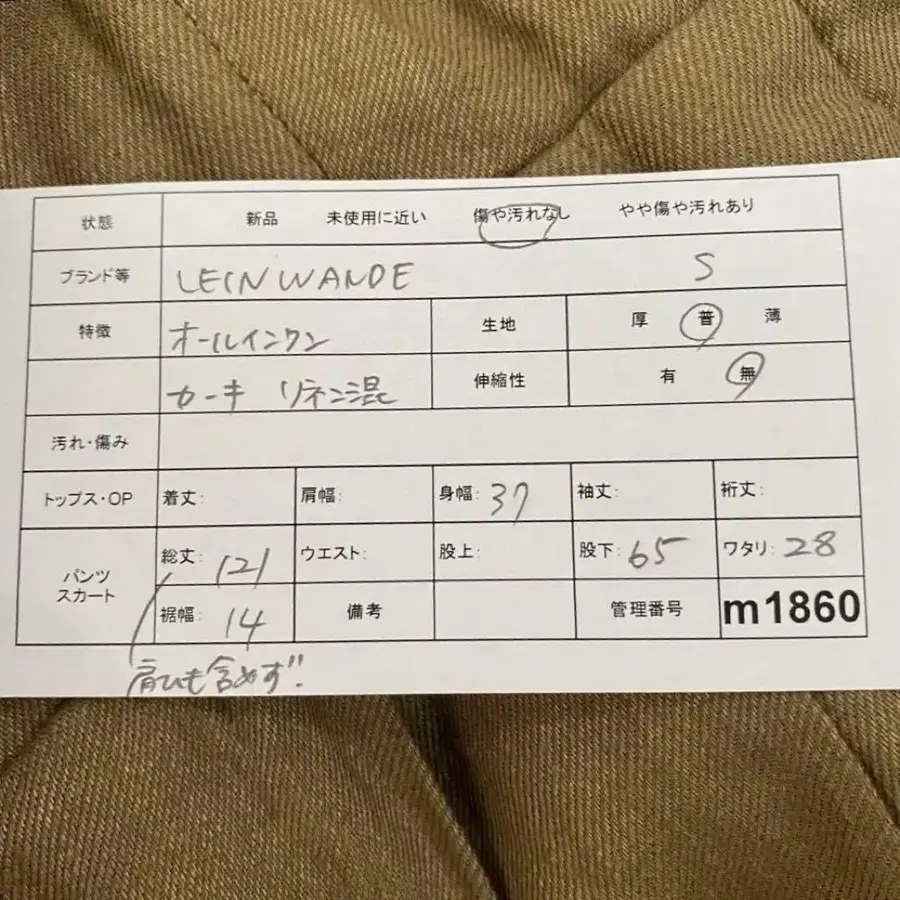 状態 新品 未使用に近い 傷や汚れなし やや傷や汚れあり
ブランド等 LEINWANDE S
特徴 オールインワン 生地 厚 普 薄
カーキ リネン混 伸縮性 有 無
汚れ・傷み
トップス・OP 着丈: 肩幅: 身幅: 37 袖丈: 裄丈:
パンツ スカート 総丈: 121 ウエスト: 股上: 股下: 65 ワタリ: 28
裾幅: 14 備考 管理番号 m1860
肩ひも含めず!!